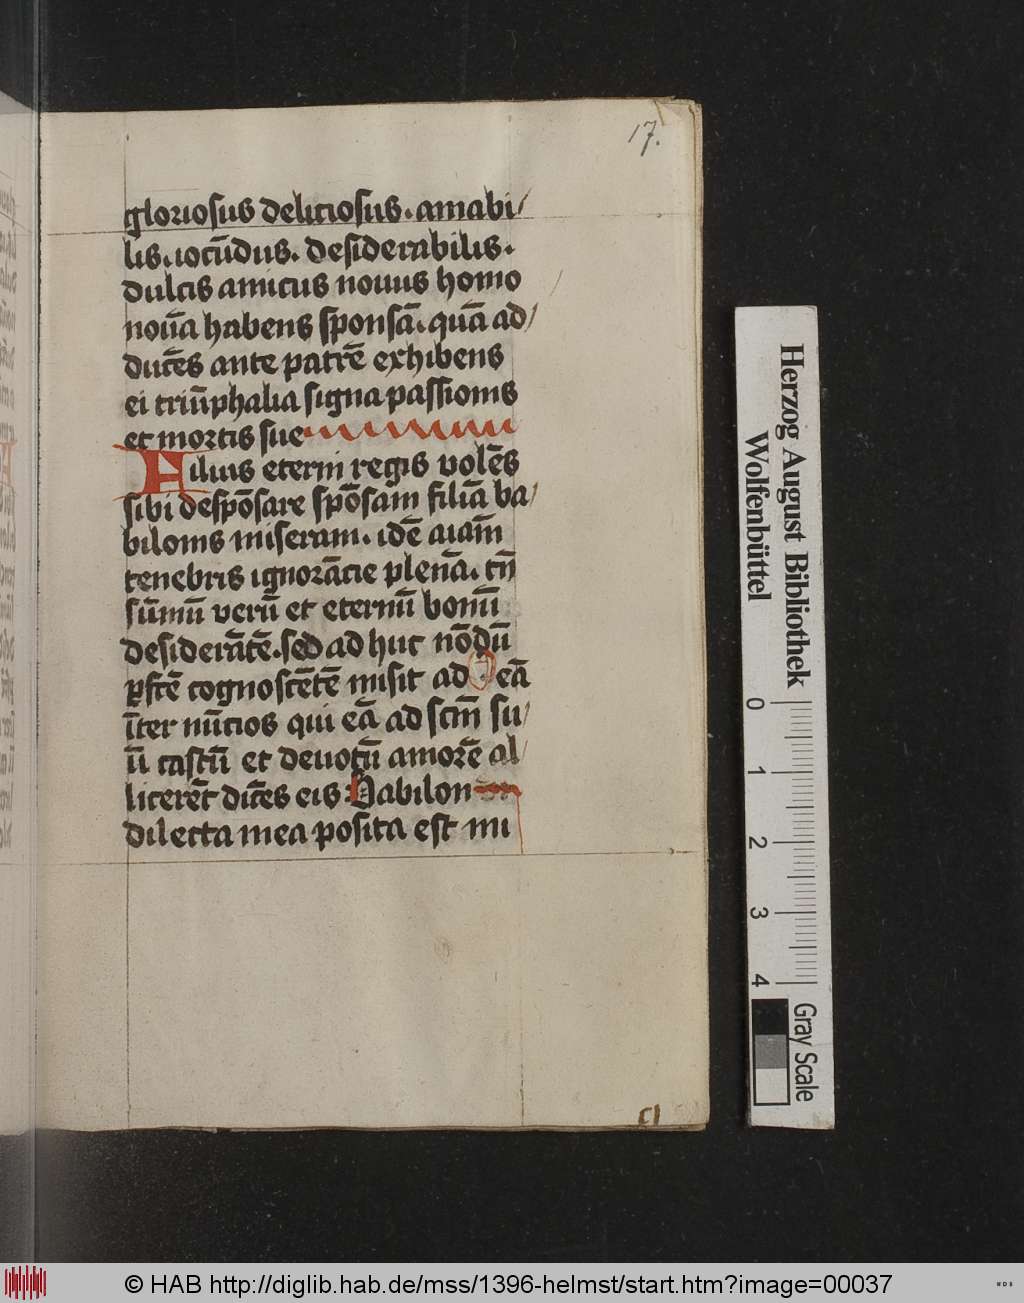 17.
gloriosus deliciosus. amabi/
lis. iocūdus. desiderabilis.
dulcis amicus nouus homo
nouā habens sponsā. quā ad/
ducēs ante patrē exhibens
ei triūphalia signa passionis
et mortis sue
Filius eterni regis volēs
sibi despōsare spōsam filiā ba/
bilonis miseram. idē aiam̄
tenebris ignorācie plenā. tn̄
sūmū verū et eternū bonū
desiderātē. sed ad huc nōdū
ꝑfcē cognoscētē misit ad eā
īter nūcios qui eā ad scm̄ su/
ū castū et deuotū amorē al/
licerēt dicēs eis Babilon
dilecta mea posita est mi
Herzog August Bibliothek
Wolfenbüttel
0 1 2 3 4
Gray Scale
© HAB http://diglib.hab.de/mss/1396-helmst/start.htm?image=00037
WDB